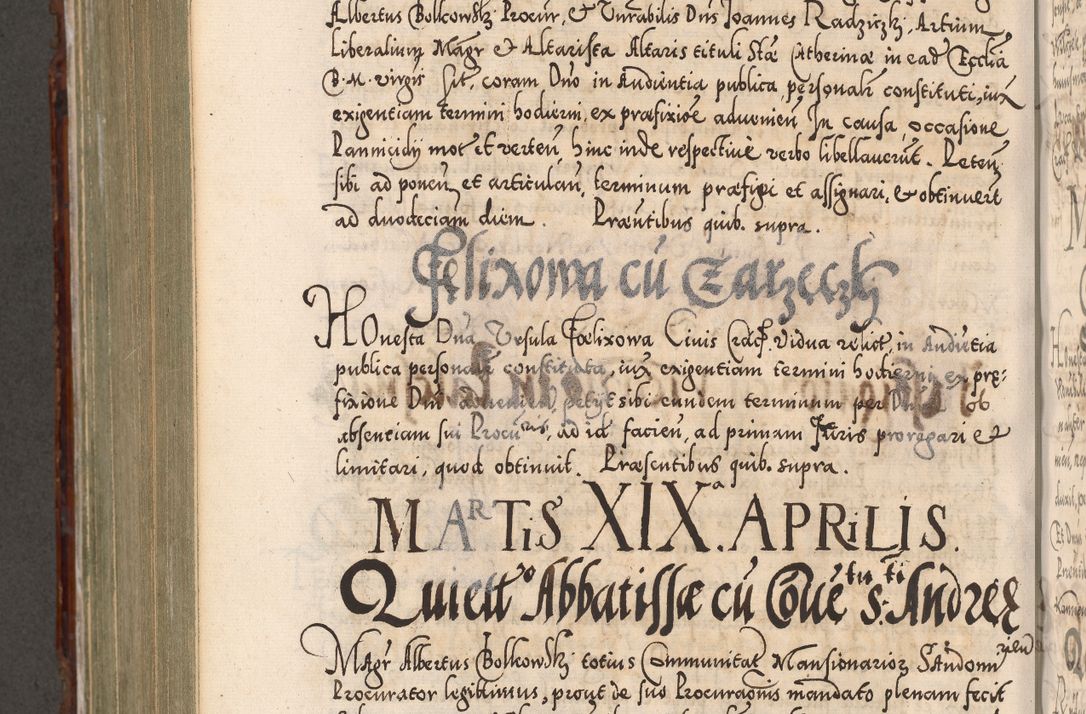 Albertus Bolkowskj Procur, & Vnrabilis Dns Joannes Radziczkj, Artium
Liberalium Magr & Altarista Altaris tituli Stæ Catherinæ in ead Ecclia
B. M. Virgis sit, coram Dno in Audientia publica personalr constituti, iux
exigentiam termini hodierni, ex præfixiõe aduenien In causa, occasione
Pannicidij mot et verten, hinc inde respectiuè verbo libellauerũt. Peten
sibi ad ponen et articulan, terminum præfigi et assignari, & obtinuert
ad duodeciam diem. Præntibus quib. supra.
Felixowa cũ Zarzeczkj
HOnesta Dna Vrsula Fœlixowa Ciuis Crac Vidua relict, in Audiẽtia
publica personalr constituta, iux exigentiam termini hodierni ex præ-
fixione Dni aduenien, petijt sibi eundem terminum per Dnum ob
absentiam sui Procuris, ad id facien, ad primam Juris prorogari &
limitari, quod obtinuit. Præsentibus quib. supra.
MARTiS XIXa. APRiLIS.
Quiettо Abbatissæ cũ Cõuētu S: ti Andreæ
MAgr Albertus Bolkowskj totius Communitat Mansionarior S Andomi
Procurator legittimus, prout de suo Procuraonis mandato plenam fecit